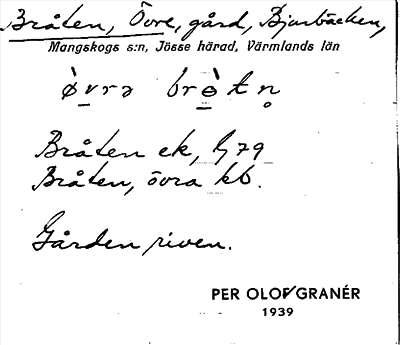 Bråten, Övre, gård, Bjurbäcken,
Mangskogs s:n, Jösse härad, Värmlands län
ø̀vrə brɵ̀tn̥
Bråten ek, G 79
Bråten, övra kb.
Gården riven.
PER OLOF GRANÉR
1939